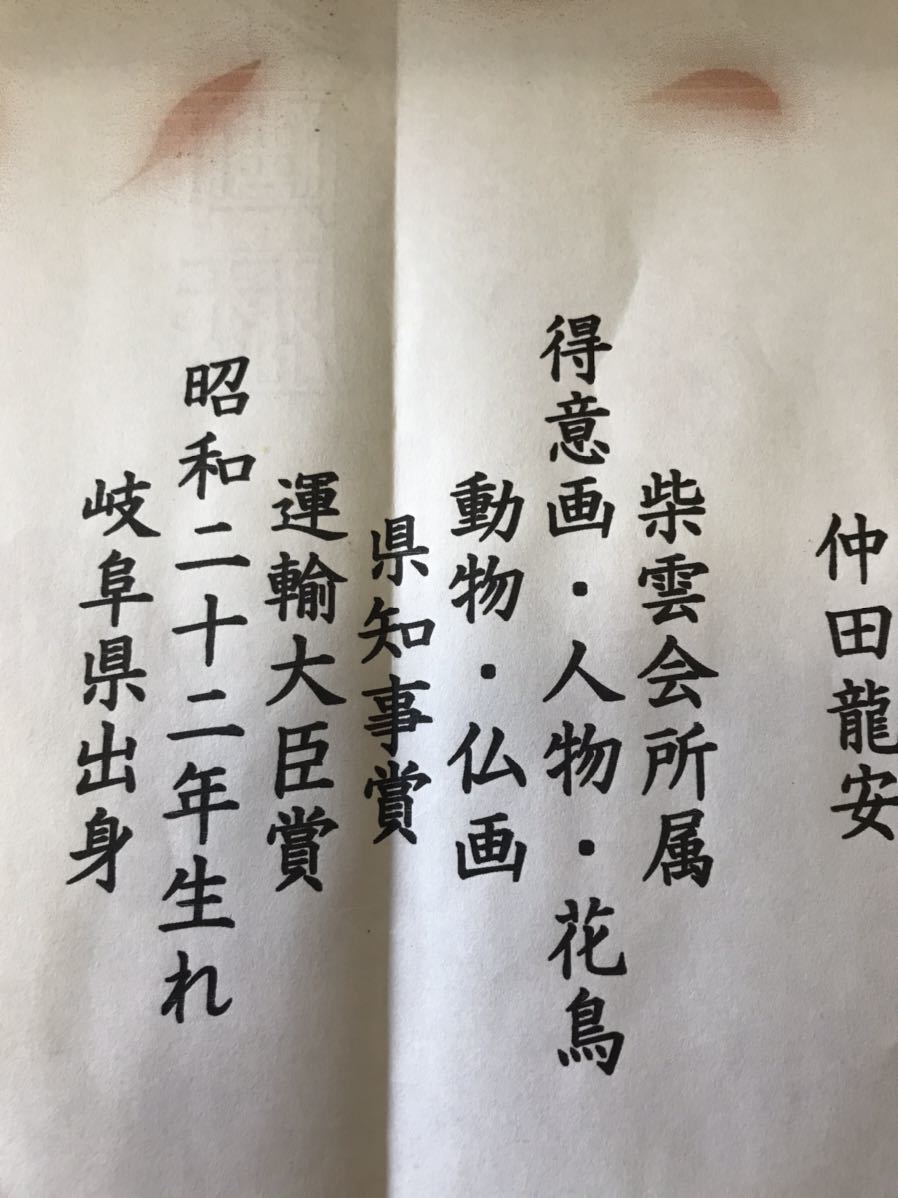 仲田龍安
柴雲会所属
得意画・人物・花鳥
動物・仏画
県知事賞
運輸大臣賞
昭和二十二年生れ
岐阜県出身